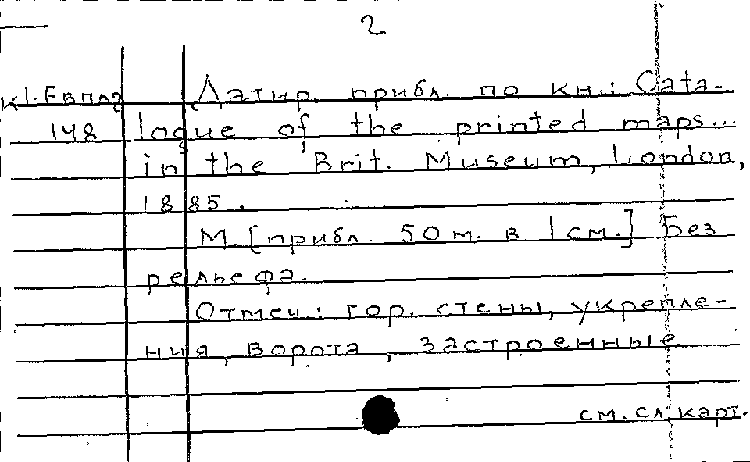 2
К 1-Евпла Датир. прибл. по кн.: Cata-
148 logue of the printed maps...
in the Brit. Museum, London,
1885.
М [прибл. 50 м. в 1 см.] Без
рельефа.
Отмеч: гор. стены, укрепле-
ния, ворота, застроенные
см. сл. карт.